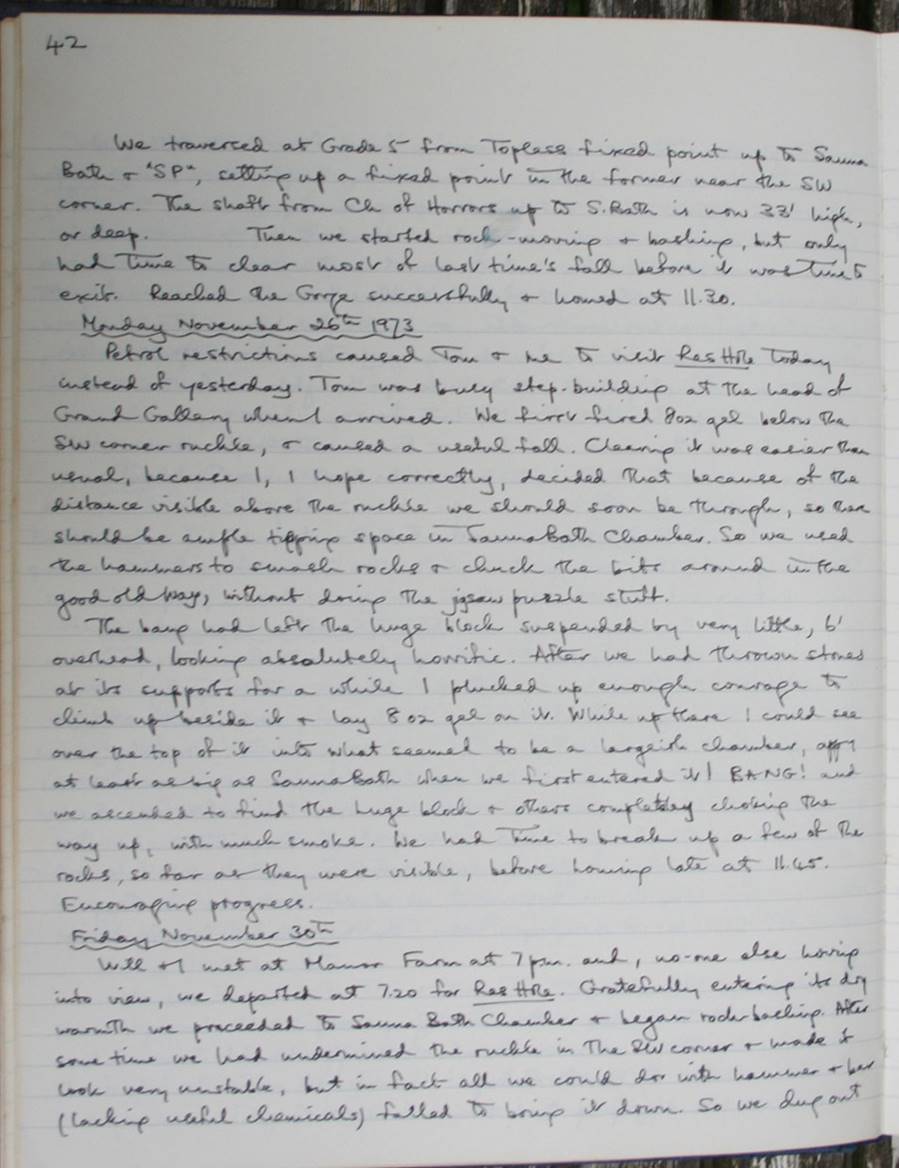 42
We traversed at Grade 5 from Topless fixed point up to Sauna
Bath & "SP", setting up a fixed point in the former near the SW
corner. The shaft from Ch of Horrors up to S.Bath is now 33' high,
or deep. Then we started rock-moving & bashing, but only
had time to clear most of last time's fall before it was time to
exit. Reached the Gorge successfully & homed at 11.30.
Monday November 26th 1973
Petrol restrictions caused Tom & me to visit Res Hole today
instead of yesterday. Tom was busy step-building at the head of
Grand Gallery when I arrived. We first fired 8oz gel below the
SW corner ruckle, & caused a useful fall. Clearing it was easier than
usual, because I, I hope correctly, decided that because of the
distance visible above the ruckle we should soon be through, so there
should be ample tipping space in Sauna Bath Chamber. So we used
the hammers to smash rocks & chuck the bits around in the
good old way, without doing the jigsaw puzzle stuff.
The bang had left the huge block suspended by very little, 6'
overhead, looking absolutely horrific. After we had thrown stones
at its supports for a while I plucked up enough courage to
climb up beside it & lay 8 oz gel on it. While up there I could see
over the top of it into what seemed to be a largeish chamber,
at least as big as Sauna Bath when we first entered it! BANG! and
we ascended to find the huge block & others completely choking the
way up, with much smoke. We had time to break up a few of the
rocks, so far as they were visible, before homing late at 11.45.
Encouraging progress.
Friday November 30th
Will & I met at Manor Farm at 7 p.m. and, no-one else hoving
into view, we departed at 7.20 for Res Hole. Gratefully entering its dry
warmth we proceeded to Sauna Bath Chamber & began rock-bashing. After
some time we had undermined the ruckle in the SW corner & made it
look very unstable, but in fact all we could do with hammer & bar
(lacking useful chemicals) failed to bring it down. So we dug out